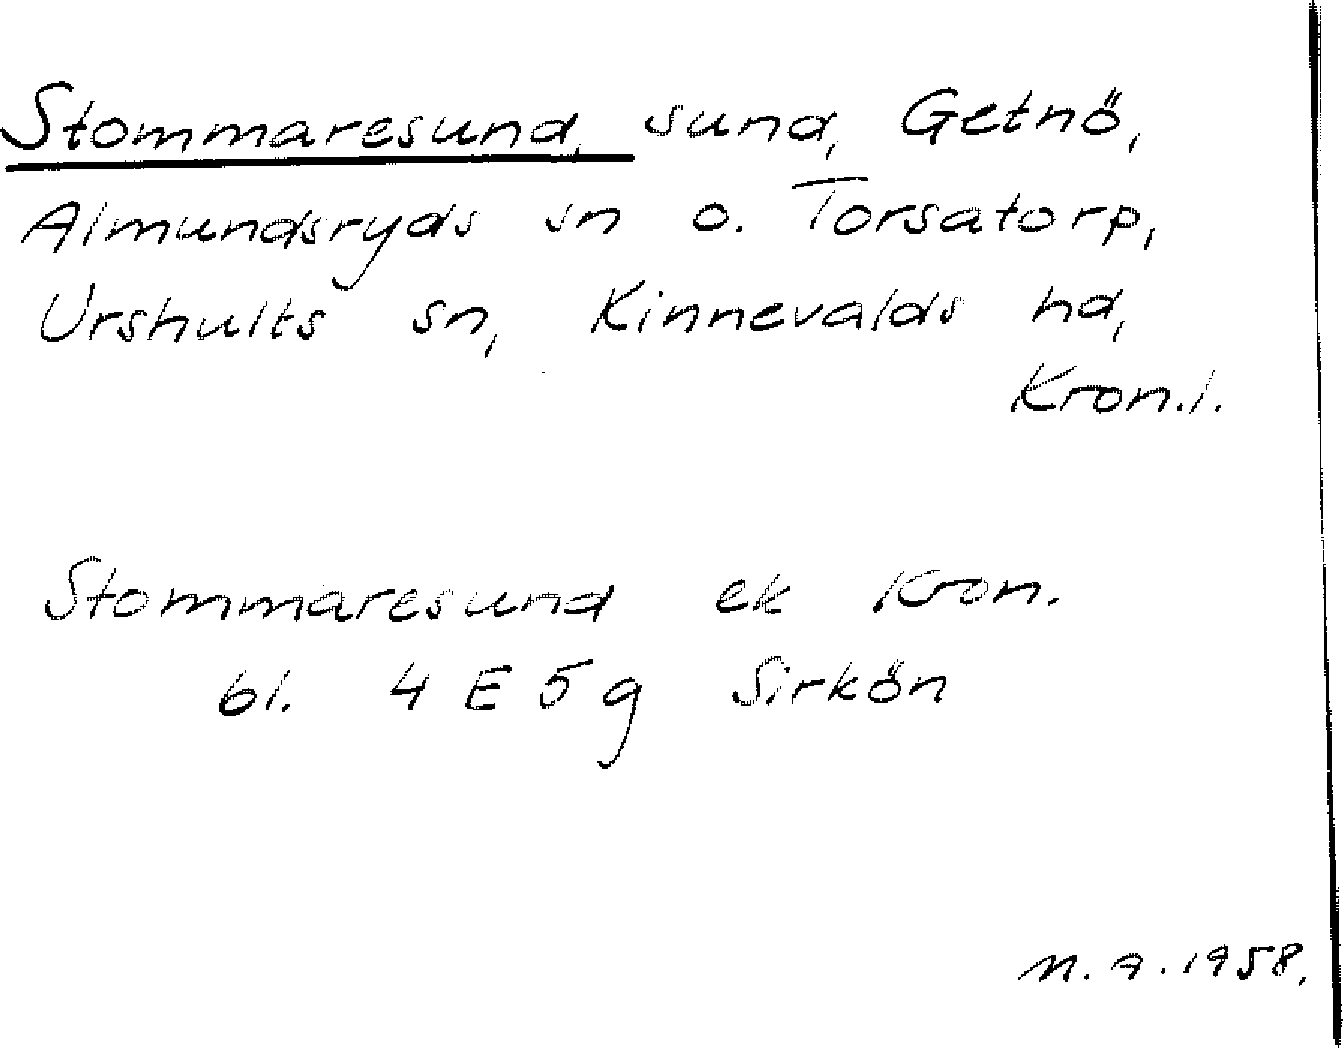 Stommaresund, sund, Getnö,
Almundsryds sn o. Torsatorp,
Urshults sn, Kinnevalds hd,
Kron.l.
Stommaresund ek Kron.
bl. 4 E 5 g Sirkön
M. A. 1958.